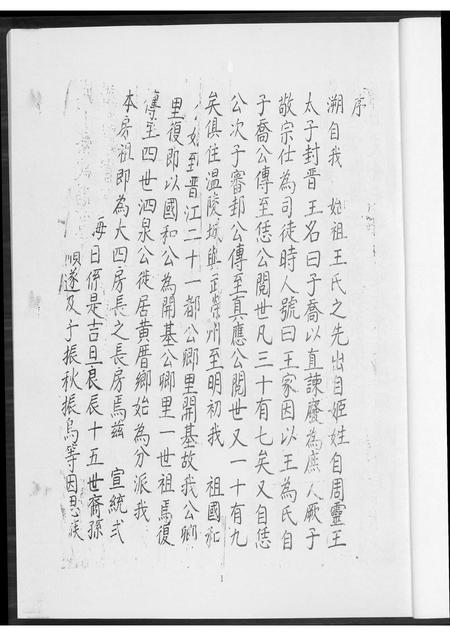 序
溯自我　始祖王氏之先出自姬姓自周靈王
太子封晋王名曰子喬以直諫廢為庶人厥子
敬宗仕為司徒時人號曰王家因以王為氏自
子喬公傳至恁公閱世凡三十有七矣又自恁
公次子審邽公傳至真應公閱世又一十有九
矣俱住温陵城與正榮州至明初我　祖國和
始到晋江二十一都公鄉里開基故我公鄉
里復即以國和公為開基公鄉里一世祖焉復
傳至四世泗泉公徙居黄厝鄉始為分派我
本房祖即為大四房長之長房焉兹　宣統弍
每日係是吉旦良辰十五世裔孫
順遂及子振秋振烏等因思族
1